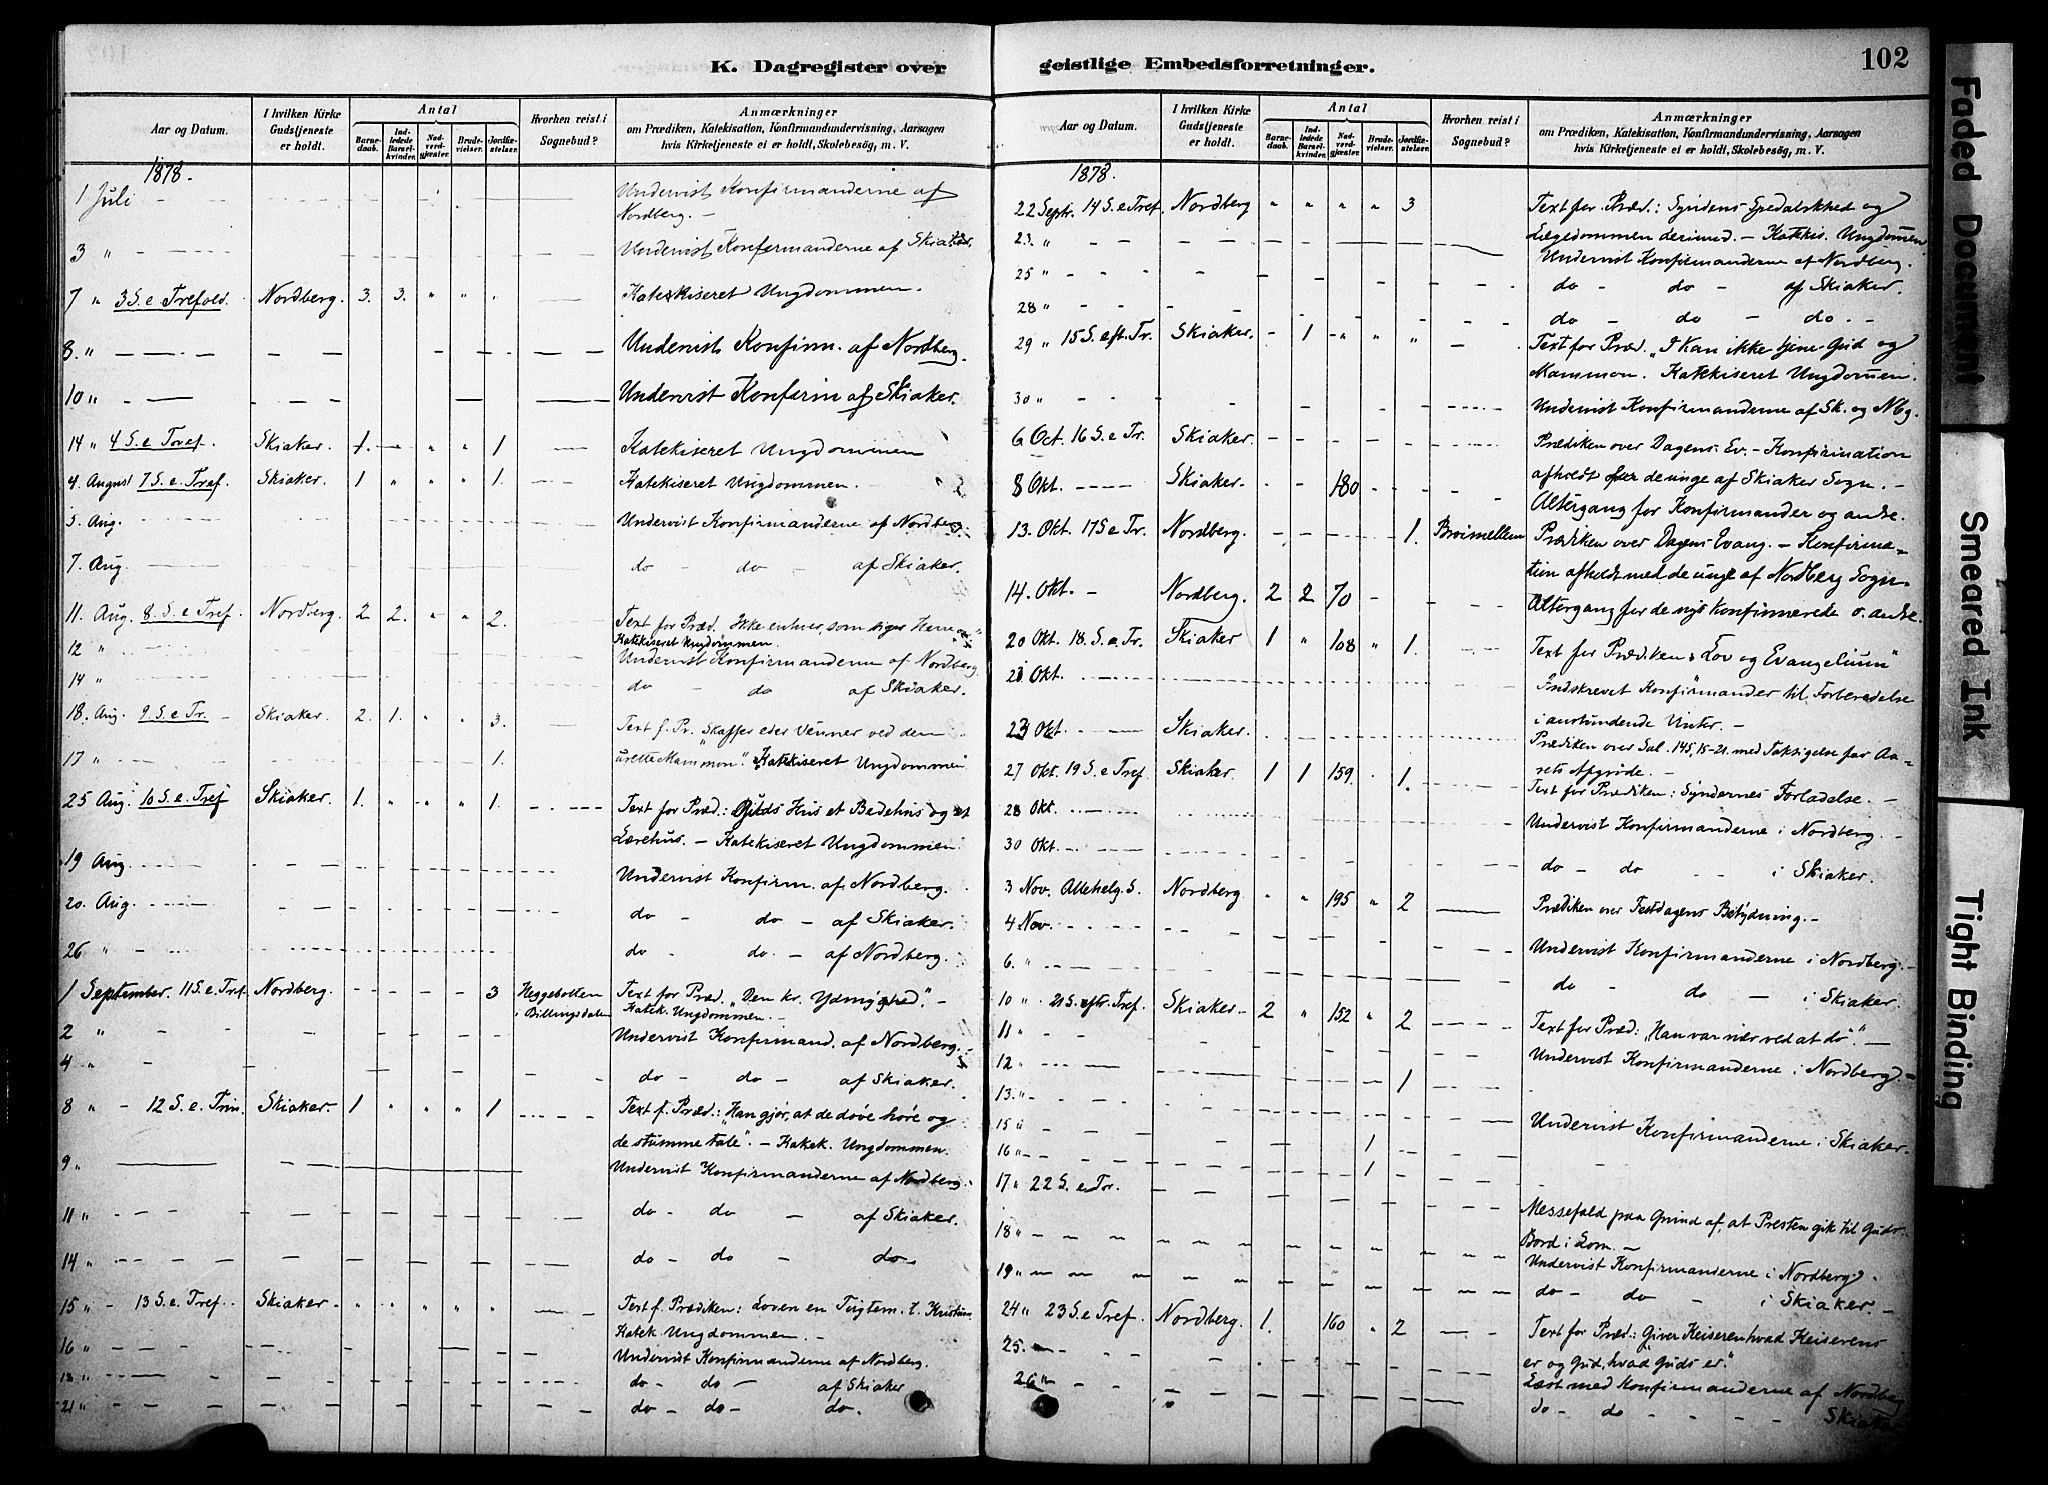 K. Dagregister over
Aar og Datum.
I hvilken Kirke Gudstjeneste er holdt.
Antal
Barnedaab.
Indledede Barselkvinder.
Nadverdgjæster.
Brudevielser.
Jordfæstelser.
Hvorhen reist i Sognebud?
Anmærkninger
om Prædiken, Katekisation, Konfirmandundervisning, Aarsagen
hvis Kirketjeneste ei er holdt, Skolebesøg, m. V.
1878.
1 Juli Undervist Konfirmanderne af
Nordberg. -
3 " Undervist Konfirmanderne af Skiaker.
7 " 3 S. e Trefold. Nordberg. 3. 3. " " " Katekiseret Ungdommen.
8. " Undervist Konfirm. af Nordberg.
10 " Undervist Konfirm af Skiaker.
14 " 4 S. e Tref. Skiaker. 1. " " 1 Katekiseret Ungdommen
4. August 7 S. e Tref. Skiaker. 1 " " " 1. Katekiseret Ungdommen.
5. Aug. Undervist Konfirmanderne af Nordberg.
7. Aug. do - do - af Skiaker.
11. Aug. 8. S. e Tref. Nordberg. 2 2. " " 2. Text for Præd. Ikke enhver, som siger Herre
Katekiseret Ungdommen.
12 " Undervist Konfirmanderne af Nordberg
14 " do - do af Skiaker.
18. Aug. 9. S. e Tr. - Skiaker. 2. 1. " " 3. Text f. Pr. "Skaffer eder Venner ved den
17 " 1. urette Mammon". Katekiseret Ungdommen
25 Aug. 10 S. e. Tref Skiaker. 1. " " " 1. Text for Præd.: Guds Hus et Bedehus og et
Lærehus. - Katekiseret Ungdommen
19 Aug Undervist Konfirm. af Nordberg.
20. Aug. do - do - af Skiaker.
26 " do do. - af Nordberg.
1 September. 11 S. e. Tref. Nordberg. 3 Heggebotten
i Billingsdalen Text for Præd. "Den kr. Ydmyghed". -
Katek. Ungdommen. -
2 " Undervist Konfirmand. af Nordberg. -
4 " do - do - af Skiaker.
8 " - 12 S. e. Trin. Skiaker. 1 " " " 1 Text f. Præd.: "Han gjør, at de døve høre og
de stumme tale". - Katek. Ungdommen.
9 " Undervist Konfirmanderne af Nordberg.
11 " do - do - af Skiaker.
14 " do - do - do -
15 " - 13 S. e. Tref. Skiaker. " " " " " Text f. Prædiken: Loven en Tugtem. t. Kristum
Katek. Ungdommen. -
16 " Undervist Konfirmanderne af Nordberg.
18 " do - do - af Skiaker
21 " do - do - do.
geistlige Embedsforretninger.
102
Aar og Datum.
I hvilken Kirke Gudstjeneste er holdt.
Antal
Barnedaab.
Indledede Barselkvinder.
Nadverdgjæster.
Brudevielser.
Jordfæstelser.
Hvorhen reist i Sognebud?
Anmærkninger
om Prædiken, Katekisation, Konfirmandundervisning, Aarsagen
hvis Kirketjeneste ei er holdt, Skolebesøg, m. V.
1878.
22 Septr. 14 S. e Tref. Nordberg " " " " 3 Text for Præd.: Syndens Spedalskhed og
Lægedommen derimod. - Katekis. Ungdomen
23. " Undervist Konfirmanderne af Nordberg.
25 " do - do - af Skiaker.
28 " do - do - do. -
29 " 15 S. eft. Tr. Skiaker. - 1 " " " Text for Præd. "I kan ikke tjene Gud og
Mammon. Katekiseret Ungdomen.
30 " Undervist Konfirmanderne af Sk. og Nbg.
6 Oct. 16 S. e Tr. Skiaker. Prædiken over Dagens Ev. - Konfirmation
afholdt over de unge af Skiaker Sogn. -
8 Okt. Skiaker. 180 Altergang for Konfirmander og andre.
13. Okt. 17 S e Tr. Nordberg. 1. Brøimellem Prædiken over Dagens Evang. - Konfirma-
tion afholdt med de unge af Nordberg Sogn.
14. Okt. - Nordberg. 2 2 70 Altergang for de nys Konfirmerede o. andre.
20 Okt. 18. S. e Tr. Skiaker 1 " 108 " 1. Text for Prædiken: Lov og Evangelium"
21 Okt. Indskrevet Konfirmander til Forberedelse
i anstundende Vinter. -
23 Okt. Skiaker. Prædiken over Sal. 145, 15-21. med Taksigelse for Aa-
rets Afgrøde. -
27 Okt. 19 S. e Tref. Skiaker. 1 1 159. 1. Text for Prædiken: Syndernes Forladelse. -
28 Okt. Undervist Konfirmanderne i Nordberg. -
30 Okt. do - do - - i Skiaker.
3 Nov. Allehelg. S. Nordberg " " 195 " 2 Prædiken over Festdagens Betydning. -
4 Nov. Undervist Konfirmanderne i Nordberg. -
6. " do - do - i Skiaker.
10 " 21 S. eftr. Tref. Skiaker - 2 " 152 " 2 Text for Præd: "Han var nær ved at dø". -
11 " Undervist Konfirmanderne i Nordberg -
12 " 1
13. " Undervist Konfirmanderne i Skiaker.
15 " 1
16 " 1
17 " 22 S. e Tr. Messefald paa Grund af, at Presten gik til Guds
Bord i Lom. -
18 " Undervist Konfirmanderne i Nordberg. -
19 " do - do - i Skiaker. -
24 " 23 S. e Tref. Nordberg. 1. 160 " 2 Text for Præd.: "Giver Keiseren hvad Keiserens
er og Gud, hvad Guds er."
25. Læst med Konfirmanderne af Nordberg
26 " do - do - - - - Skiaker
Faded Document
Smeared Ink
Tight Binding